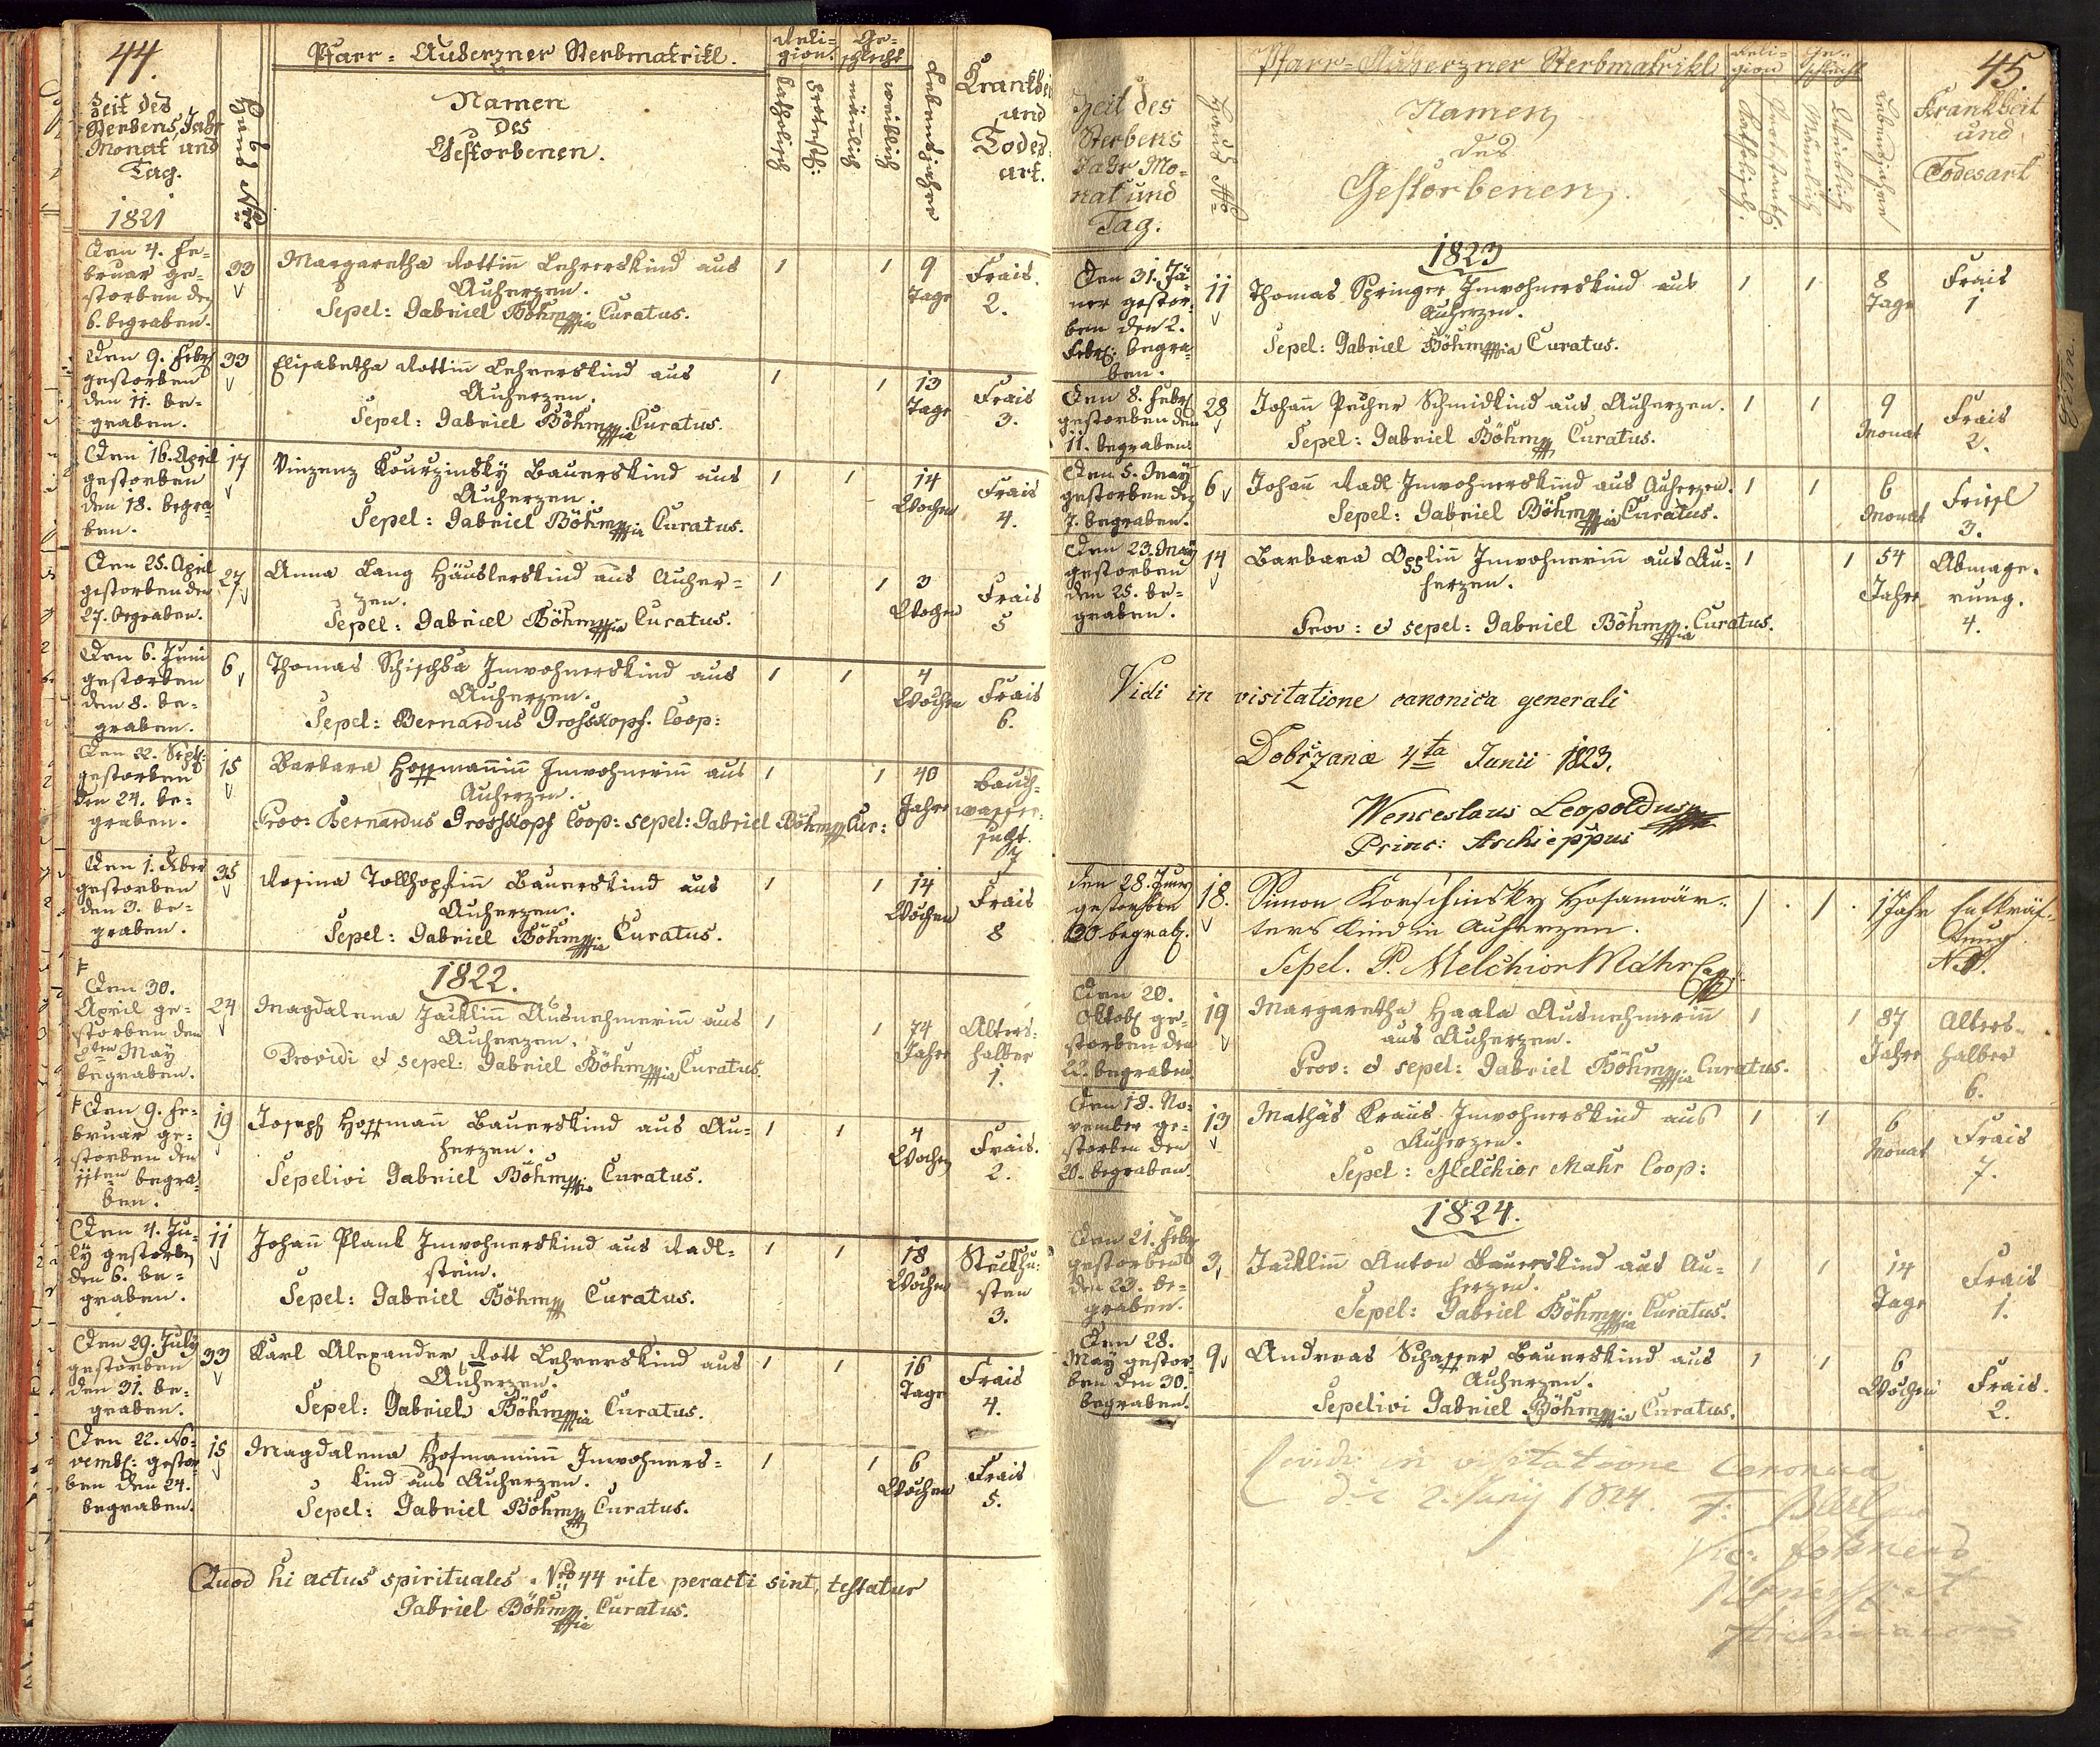 44.
Pfarr-Auherzner Sterbmatrikl.
Zeit des
Sterbens, Jahr
Monat und
Tag.
1821
Haus Nro
Namen
Des
Gestorbenen.
Reli=
gion.
katholisch
protest:
Ge=
schlecht
mänlich
weiblich
Lebensjahre
Krankheit
und
Todes=
art.
Den 4. Fe=
bruar ge=
storben den
6. begraben.
33
Margaretha Rottin Lehrerskind aus
Auherzen.
Sepel: Gabriel Böhm Curatus.
1 1 9
Tage
Frais.
2.
Den 9. Febr
gestorben
den 11. be=
graben.
33
Elisabetha Rottinn Lehrerskind aus
Auherzen.
Sepel: Gabriel Böhm Curatus.
1 1 13
Tage
Frais
3.
Den 16. April
gestorben
den 18. begra
ben.
17
Vinzenz Kourzinsky Bauerskind aus
Auherzen.
Sepel: Gabriel Böhm Curatus.
1 1 14
Wochen
Frais
4.
Den 25. April
gestorben den
27. begraben.
27
Anna Lang Häuslerskind aus Auher=
zen.
Sepel: Gabriel Böhm Curatus.
1 1 3
Wochen
Frais
5
Den 6. Juni
gestorben
den 8. be=
graben.
6
Thomas Schischka Inwohnerskind aus
Auherzen.
Sepel: Bernardus Grosskopf. Coop:
1 1 4
Wochen
Frais
6.
Den 22. Sept:
gestorben
den 24. be=
graben.
15
Barbara Hoffmanninn Inwohnerinn aus
Auherzen.
Prov: Bernardus Grosskopf Coop: sepel: Gabriel Böhm Cur:
1 1 40
Jahre
Bauch=
wasser=
sucht.
7
Den 1.
gestorben
den 3. be=
graben.
35
Rosina Tollhopfinn Bauerskind aus
Auherzen.
Sepel: Gabriel Böhm Curatus.
1 1 14
Wochen
Frais
8
1822.
Den 30.
April ge=
storben den
May
begraben.
24
Magdalena Jacklinn Ausnehmerinn aus
Auherzen.
Providi et sepel: Gabriel Böhm Curatus.
1 1 74
Jahre
Alters=
halber
1.
Den 9. Fe=
bruar ge=
storben den
11ten begra=
ben.
19
Joseph Hoffmann Bauerskind aus Au=
herzen.
Sepelivi Gabriel Böhm Curatus.
1 1 4
Wochen
Frais.
2.
Den 4. Ju=
ly gestorben
den 6. be=
graben.
11
Johann Plank Inwohnerskind aus Radl=
stein.
Sepel: Gabriel Böhm Curatus.
1 1 18
Wochen
Steckhu=
sten
3.
Den 29. July
gestorben
den 31. be=
graben.
33
Karl Alexander Rott Lehrerskind aus
Auherzen.
Sepel: Gabriel Böhm Curatus.
1 1 16
Tage
Frais
4.
Den 22. No=
vemb: gestor
ben den 24.
begraben.
15
Magdalena Hofmaninn Inwohners=
kind aus Auherzen.
Sepel: Gabriel Böhm Curatus.
1 1 6
Wochen
Frais
5.
Quod hi actus spirituales Nro 44 rite peracti sint, testatur
Gabriel Böhm Curatus.
45
Pfarr-Auherzner Sterbmatrikl
Zeit des
Sterbens
Jahr Mo=
nat und
Tag.
Haus No
Namen
des
Gestorbenen.
Reli=
gion
Katholisch.
Protestant.
Ge=
schlecht
Mänlich
Weiblich
Lebensjahre
Krankheit
und
Todesart
1823
Den 31. Jä=
ner gestor=
ben den 2.
Febr: begra=
ben.
11
Thomas Springer Inwohnerskind aus
Auherzen.
Sepel: Gabriel Böhm Curatus.
1 1 8
Tage
Frais
1
Den 8. Febr
gestorben den
11. begraben.
28
Johann Pecher Schmidkind aus Auherzen.
Sepel: Gabriel Böhm Curatus.
1 1 9
Monat
Frais
2.
Den 5. May
gestorben den
7. begraben.
6
Johann Radl Inwohnerskind aus Auherzen.
Sepel: Gabriel Böhm Curatus.
1 1 6
Monat
Friesl
3.
Den 23. May
gestorben
den 25. be=
graben.
14
Barbara Opplinn Inwohnerinn aus Au=
herzen.
Prov: et sepel: Gabriel Böhm Curatus.
1 1 54
Jahre
Abmage=
rung.
4.
Vidi in visitatione canonica generali
Dobržanæ 4ta Junii 1823.
Wenceslaus Leopoldus
Princ:
den 28.
gestorben
30 begrab.
18.
Simon Korschinsky Hofanwär=
ters Kind in Auherzen.
Sepel. P. Melchior Mahr
1 1 1 Jahr
Entkräf=
tung
Den 20.
Oktob ge=
storben den
22. begraben
19
Margaretha Haala Ausnehmerinn
aus Auherzen.
Prov: et sepel: Gabriel Böhm Curatus.
1 1 87
Jahre
Alters=
halber
6.
Den 18. No=
vember ge=
storben den
20. begraben.
13
Mathäs Kraus Inwohnerskind aus
Auherzen.
Sepel: Melchior Mahr Coop:
1 1 6
Monat
Frais
7.
1824.
Den 21. Febr
gestorben
den 23. be=
graben.
3
Jacklinn Anton Bauerskind aus Au=
herzen.
Sepel: Gabriel Böhm Curatus.
1 1 14
Tage
Frais
1.
Den 28.
May gestor=
ben den 30.
begraben.
9
Andreas Schaffer Bauerskind aus
Auherzen.
Sepelivi Gabriel Böhm Curatus.
1 1 6
Wochen
Frais.
2.
in visitatione Canonica
2. Junij 1824.